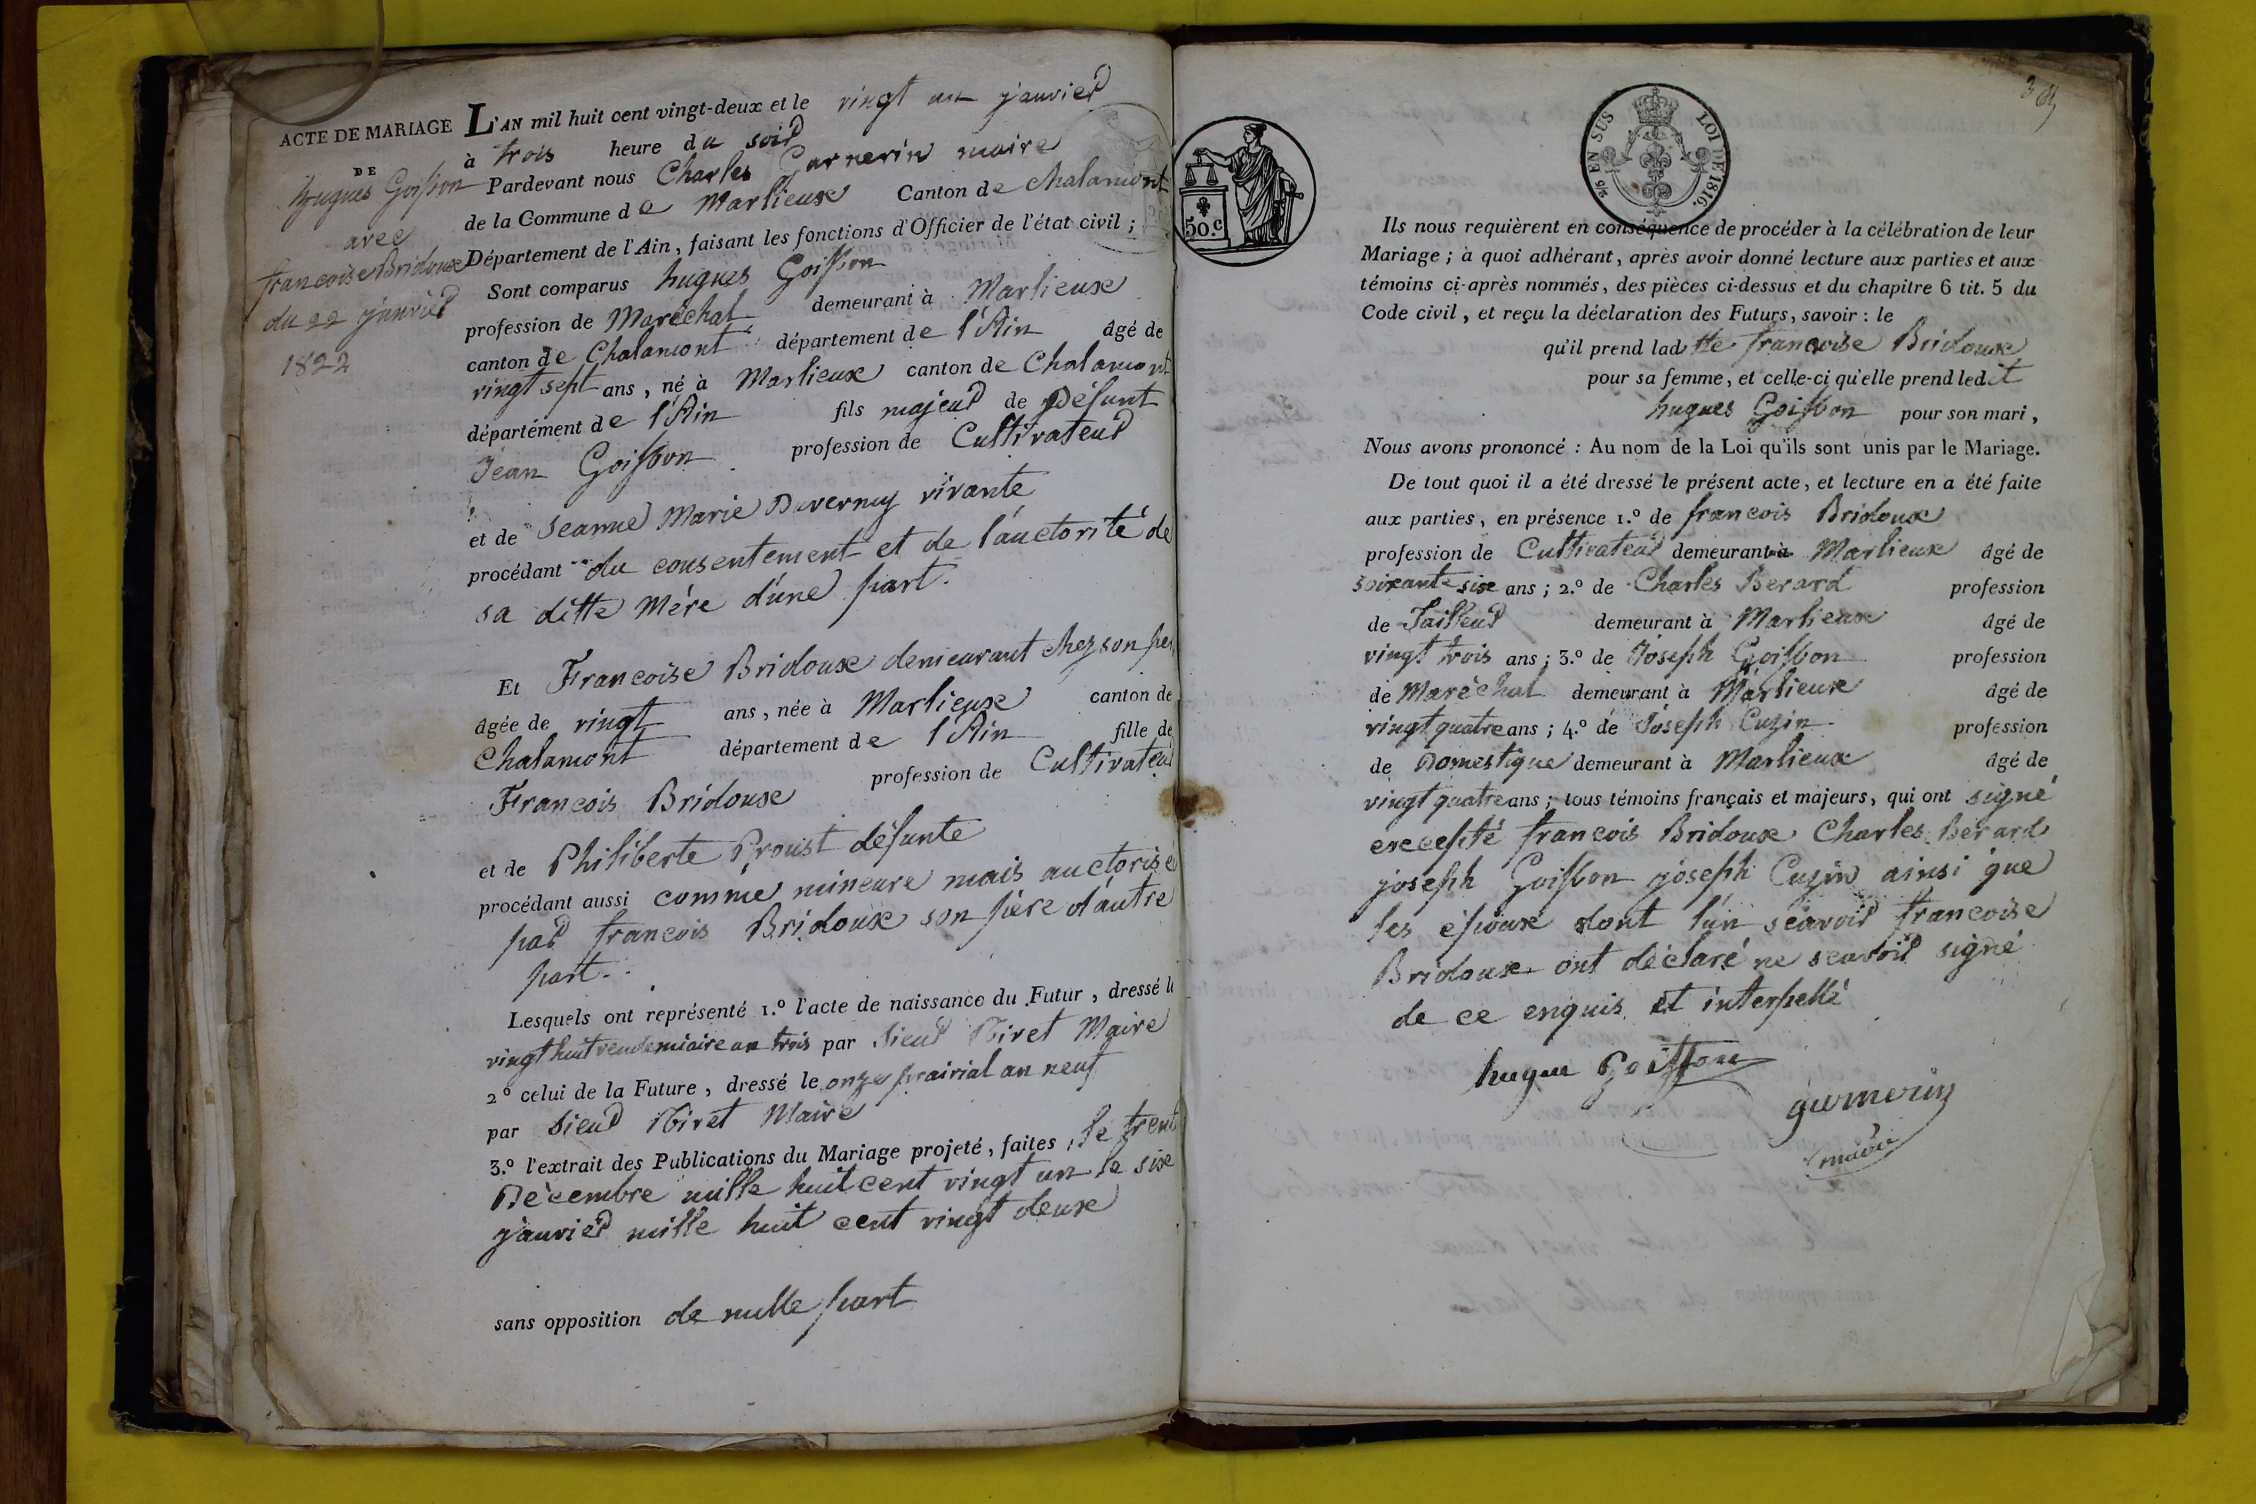 ACTE DE MARIAGE
DE
hugues Goisson
avec
francoise Bridoux
du 22 janvier
1822
L'AN mil huit cent vingt-deux et le vingt un janvier
à trois heure du soir
Pardevant nous Charles Garnerin maire
de la Commune de Marlieux Canton de Chalamont
Département de l'Ain, faisant les fonctions d'Officier de l'état civil ;
Sont comparus hugues Goisson
profession de Maréchal demeurant à Marlieux
canton de Chalamont département de l'Ain âgé de
vingt sept ans, né à Marlieux canton de Chalamont
département de l'Ain fils majeur de Défunt
Jean Goisson profession de Cultivateur
et de Jeanne Marie Duvernay vivante
procédant du consentement et de l'auctorité de
sa ditte Mére d'une part.
Et Francoise Bridoux demeurant chez son per
âgée de vingt ans, née à Marlieux canton de
Chalamont département de l'Ain fille de
Francois Bridoux profession de Cultivateur
et de Philiberte Proust défunte
procédant aussi comme mineure mais auctorisé
par francois Bridoux son père d'autre
part.
Lesquels ont représenté 1.º l'acte de naissance du Futur, dressé le
vingt huit vendemiaire an trois par Sieur Niret Maire
2º celui de la Future, dressé le onze prairial an neuf
par Sieur Niret Maire
3.º l'extrait des Publications du Mariage projeté, faites, le trent
Décembre mille huit cent vingt un le six
janvier mille huit cent vingt deux
sans opposition de nulle part
50 c
EN SUS LOI DE 1816.
Ils nous requièrent en conséquence de procéder à la célébration de leur
Mariage ; à quoi adhérant, après avoir donné lecture aux parties et aux
témoins ci-après nommés, des pièces ci-dessus et du chapitre 6 tit. 5 du
Code civil, et reçu la déclaration des Futurs, savoir : le
qu'il prend laditte francoise Bridoux
pour sa femme, et celle-ci qu'elle prend ledit
hugues Goisson pour son mari,
Nous avons prononcé : Au nom de la Loi qu'ils sont unis par le Mariage.
De tout quoi il a été dressé le présent acte, et lecture en a été faite
aux parties, en présence 1.º de francois Bridoux
profession de Cultivateur demeurant à Marlieux âgé de
soixante six ans ; 2.º de Charles Berard profession
de Tailleur demeurant à Marlieux âgé de
vingt trois ans ; 3.º de Joseph Goisson profession
de Maréchal demeurant à Marlieux âgé de
vingt quatre ans ; 4.º de Joseph Cuzin profession
de Domestique demeurant à Marlieux âgé de
vingt quatre ans ; tous témoins français et majeurs, qui ont signé
excepté francois Bridoux Charles Berard
joseph Goisson joseph Cuzin ainsi que
les époux dont l'un scavoir francoise
Bridoux ont déclaré ne scavoir signé
de ce enquis et interpellé
hugue Goisson
garnerin
maire